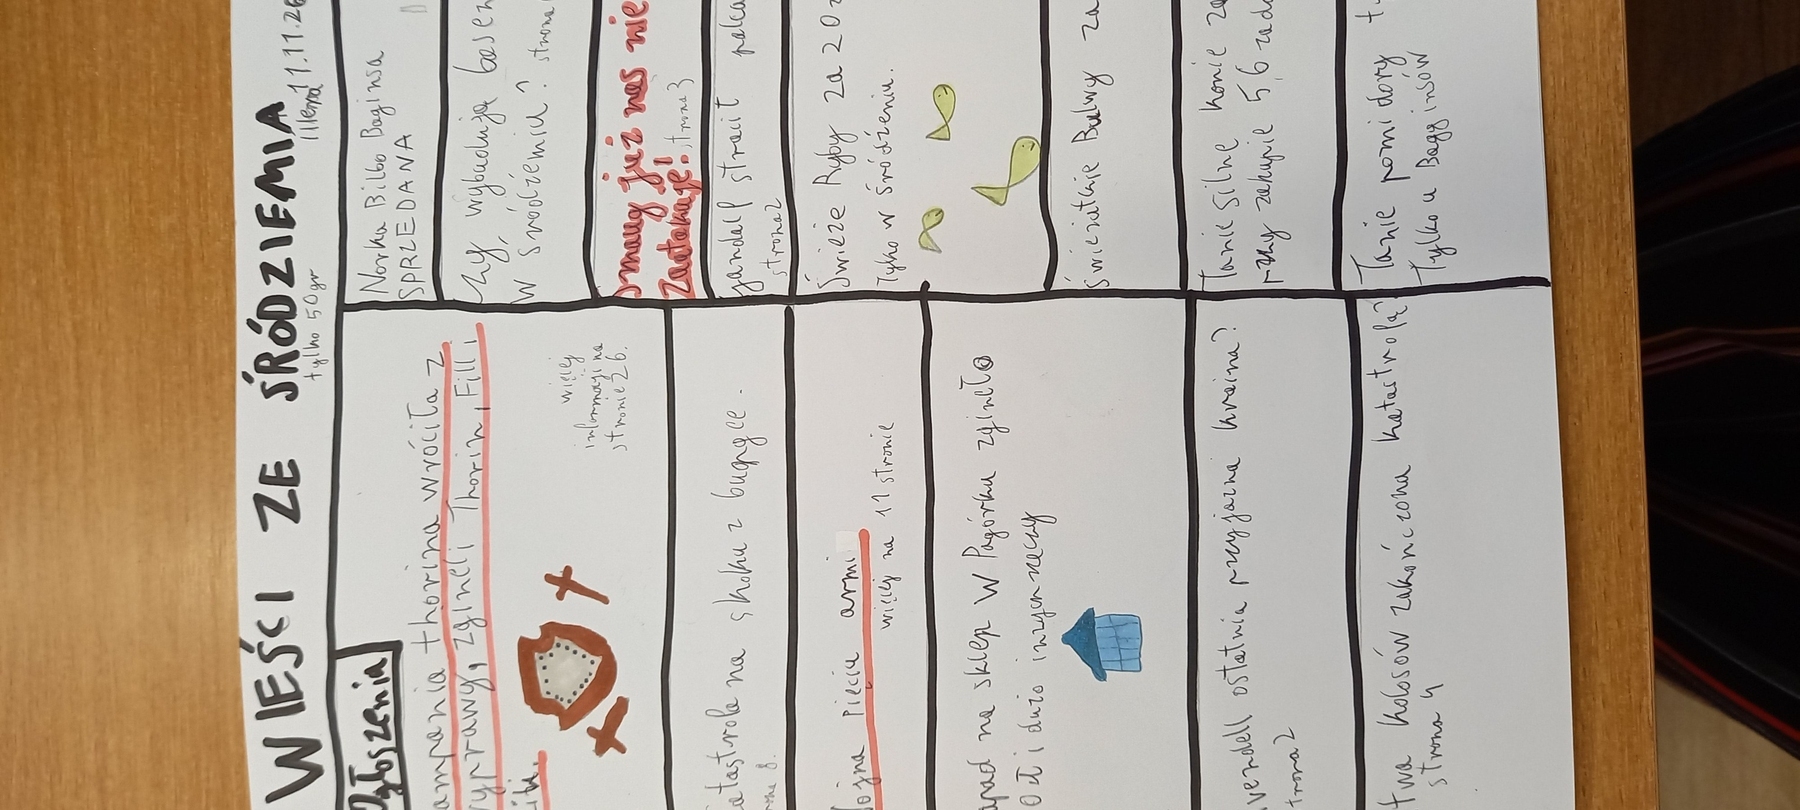 WIEŚCI ZE ŚRÓDZIEMIA
tylko 50gr
11.11.26
Ogłoszenia
ampania thorina wróciła z
yprawy, zgineli Thorin, Fili,
ili.
więcej
informacji na
stronie 26.
atastrofa na skoku z bungee.
8.
ojna Pięciu armi
więcej na 11 stronie
apad na sklep w Pagórku zgineło
oł i dużo innych rzeczy
vendell ostatnia przyjazna kraina?
trona 2
twa Kolosów zakończona katastrofą?
strona 4
Norka Bilbo Baginsa
SPRZEDANA
Czy wybudują basen
w śródziemiu? strona
Smaug już nas nie
Zaatakuje! strona 3
gandalf stracił palca
strona 2
Świeże Ryby za 20
Tylko w śródziemiu.
Świeżutkie Bulwy za
Tanie silne konie za
przy zakupie 5,6 za
Tanie pomidory
Tylko u Bagginsów